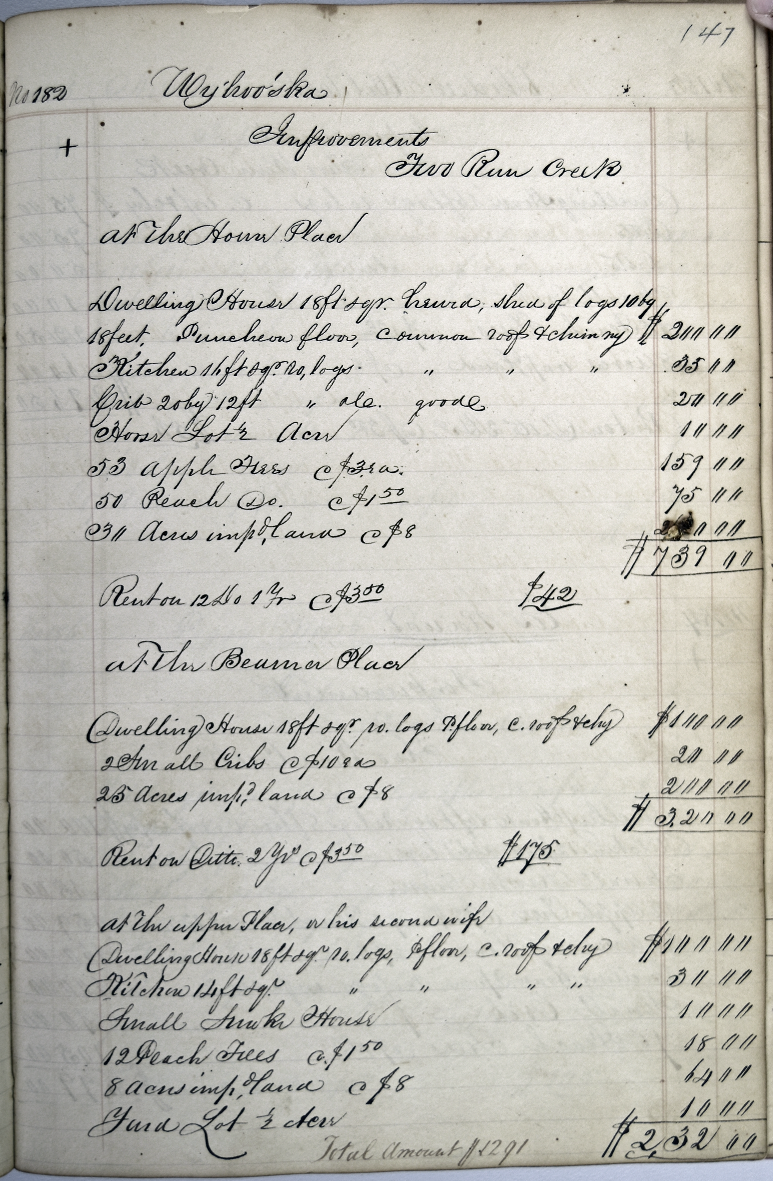 147
No 182 Wyhoo'ska
+ Improvements
Two Run Creek
at the Home Place
Dwelling House 18ft sqr. hewed, shed of logs 10 by
18 feet, Puncheon floor, common roof & chimny $200 00
Kitchen 16ft sqr ro, logs. " " " 35 00
Crib 20 by 12ft " do. goode 20 00
Horse Lot ½ Acre 10 00
53 apple Trees @ $3 ea. 159 00
50 Peach Do. @ $1 50 75 00
30 Acres imp,d land @ $8 00
$739 00
Rent on 12 Do 1 Yr @ $3 50 $42
at the Beamer Place
Dwelling House 18ft sqr ro. logs P. floor, c. roof & chy $100 00
2 Small Cribs @ $10 ea 20 00
25 Acres imp,d land @ $8 200 00
$320 00
Rent on Ditto. 2 Yrs @ $3 50 $175
at the upper Place, or his second wife
Dwelling House 18ft sqr ro. logs, P floor, c. roof & chy $100 00
Kitchen 14ft sqr " " " " 30 00
Small Smoke House 10 00
12 Peach Trees @ $1 50 18 00
8 Acres imp,d land @ $8 64 00
Yard Lot ½ Acre 10 00
Total Amount $1291 $232 00